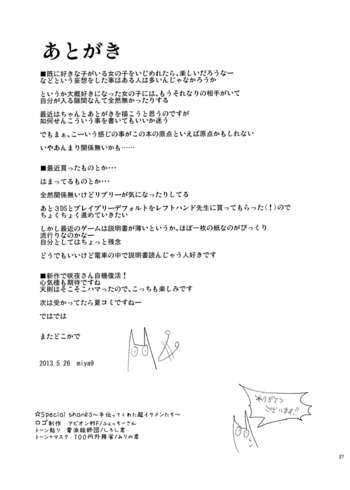 あとがき
■既に好きな子がいる女の子をいじめれたら、楽しいだろうなー
などという妄想をした事はある人は多いんじゃなかろうか
というか大概好きになった女の子には、もうそれなりの相手がいて
自分が入る隙間なんて全然無かったりする
最近はちゃんとあとがきを描こうと思うのですが
如何せんこういう事を書いてもいいか迷う
でもまぁ、こーいう感じの事がこの本の原点といえば原点かもしれない
いやあんまり関係無いかも……
■最近買ったものとか・・・
はまってるものとか・・・
全然関係無いけどリブリーが気になったりしてる
あと3DSとブレイブリーデフォルトをレフトハンド先生に買ってもらった(！)ので
ちょくちょく進めていきたい
しかし最近のゲームは説明書が薄いというか、ほぼ一枚の紙なのがびっくり
流行りなのかなー
自分としてはちょっと残念
どうでもいいけど電車の中で説明書読んじゃう人好きです
■新作で咲夜さん自機復活！
心気楼も期待ですね
天則はそこそこハマったので、こっちも楽しみです
次は受かってたら夏コミですねー
ではでは
またどこかで
2013.5.26 miya9
ありがとう
ございます!!
☆Special shanks～手伝ってくれた超イケメンたち～
ロゴ制作
トーン貼り
トーン+マスク
27